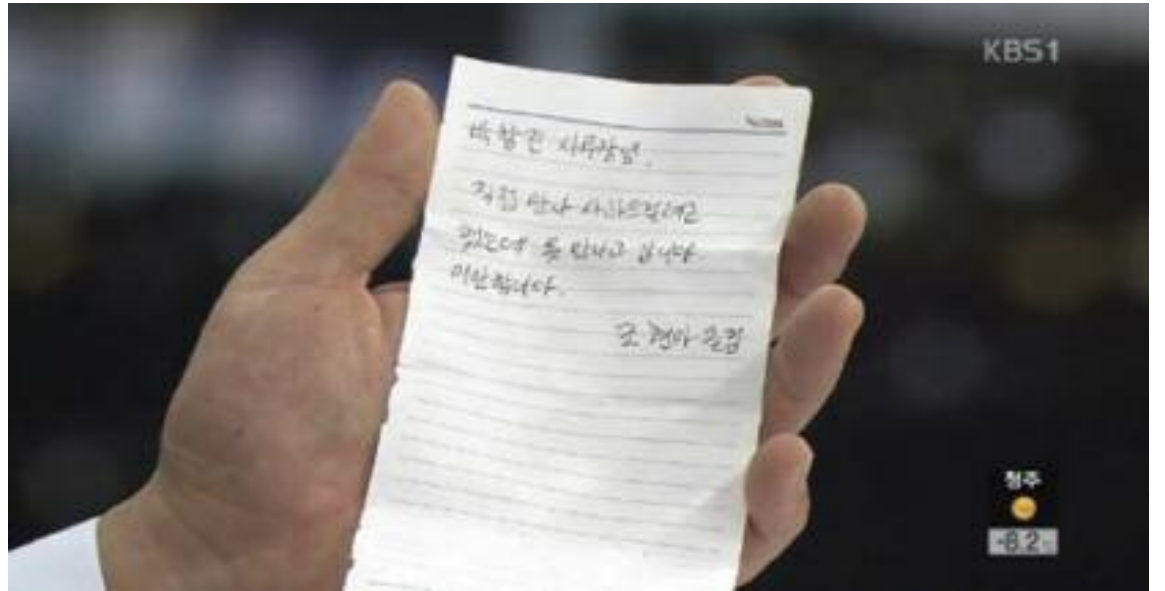 KBS1
박창진 사무장님.
직접 만나 사과드리려고
했는데 못 만나고 갑니다.
미안합니다.
조현아 올림
청주
-8.2